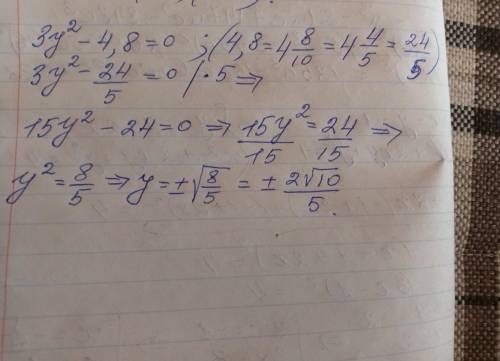 3y² - 4,8 = 0 ; (4,8 = 4 8/10 = 4 4/5 = 24/5)
3y² - 24/5 = 0 | · 5 ⇒
15y² - 24 = 0 ⇒ 15y²/15 = 24/15 ⇒
y² = 8/5 ⇒ y = ±√(8/5) = ± 2√10/5.